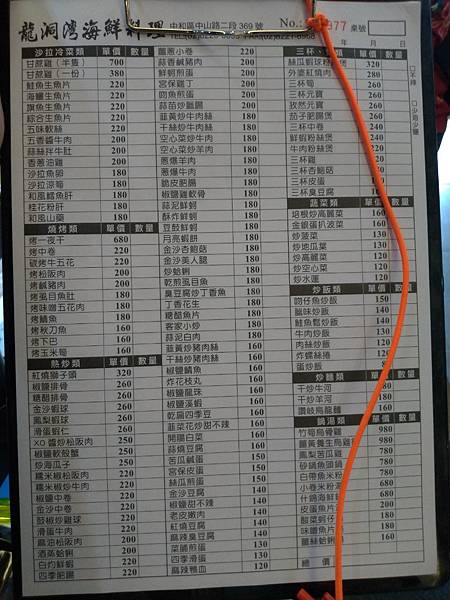 龍洞灣海鮮料理
中和區中山路二段369號
No.:
977
桌號
年 月 日
沙拉冷菜類 單價 數量
甘蔗雞(半隻) 700
甘蔗雞(一份) 380
鮭魚生魚片 200
海鱺生魚片 200
旗魚生魚片 200
綜合生魚片 200
五味軟絲 220
五香醬牛肉 200
蒜絲拌牛肚 200
香蔥油雞 200
沙拉魚卵 180
沙拉涼筍 180
和風鱈魚肝 180
桂花粉肝 180
和風山藥 180
燒烤類 單價 數量
烤一夜干 680
烤中卷 220
碳烤牛五花 220
烤松阪肉 200
烤鹹豬肉 200
烤虱目魚肚 180
烤味噌五花肉 180
烤鯖魚 180
烤秋刀魚 160
烤下巴 160
烤玉米筍 160
熱炒類 單價 數量
紅燒獅子頭 320
椒鹽排骨 260
糖醋排骨 260
金沙蝦球 260
鳳梨蝦球 260
滑蛋蝦仁 260
XO醬炒松阪肉 250
椒鹽軟殼蟹 250
炒海瓜子 250
糯米椒松阪肉 220
糯米椒炒牛肉 220
椒鹽中卷 220
金沙中卷 220
豉椒炒雞球 220
滑蛋牛肉 220
麻油松阪肉 200
酒蒸蛤蜊 200
白灼鮮蝦 220
四季肥腸 220
蒜香鹹豬肉 200
鮮蚵煎蛋 200
宮保雞丁 200
韭黃炒牛肉絲 180
干絲炒牛肉絲 180
空心菜炒牛肉 180
空心菜炒羊肉 180
蔥爆羊肉 180
蔥爆牛肉 180
脆皮肥腸 180
椒鹽雞軟骨 180
蒜泥鮮蚵 180
酥炸鮮蚵 180
豆鼓鮮蚵 180
月亮蝦餅 180
金沙杏鮑菇 180
金沙美人腿 180
炒蛤蜊 180
乾煎虱目魚 180
臭豆腐炒丁香魚 180
丁香花生 180
糖醋魚片 180
客家小炒 180
蒜泥白肉 180
韭黃炒豬肉絲 160
干絲炒豬肉絲 160
椒鹽鯖魚 160
炸花枝丸 160
椒鹽龍珠 160
椒鹽溪蝦 160
乾扁四季豆 160
韭菜花炒甜不辣 160
開陽白菜 160
蒜燒豆腐 160
苦瓜鹹蛋 150
宮保皮蛋 150
絲瓜蛤蜊 150
金沙豆腐 140
椒鹽甜不辣 140
老皮嫩肉 140
紅燒豆腐 140
麻辣臭豆腐 140
菜脯煎蛋 130
四季炒蛋 130
麻辣鴨血 120
單價 數量
絲瓜蝦球粉絲煲 320
外婆紅燒肉 280
三杯旬 260
三杯元寶 260
孜然元寶 260
茄子肥腸煲 260
三杯中卷 240
鮮蝦粉絲煲 240
牛肉粉絲煲
三杯雞
三杯杏鮑菇
三杯皮蛋
三杯臭豆腐
蔬菜類 單價 數量
培根炒高麗菜 160
金銀蛋扒波菜 160
炒菠菜 130
炒地瓜葉 130
炒高麗菜 130
炒空心菜 130
炒水蓮 160
炒飯類 單價 數量
吻仔魚炒飯 150
臘味炒飯 140
鮭魚鬆炒飯 140
牛肉炒飯 130
肉絲炒飯
炸螺絲捲
蛋炒飯
炒麵類 單價 數量
干炒牛河 160
干炒羊河 160
讚岐烏龍麵 160
鍋湯類 單價 數量
竹筍烏骨雞 980
薑黃養生烏雞 980
鳳梨苦瓜雞 780
砂鍋魚頭鍋 780
白帶魚米粉 780
小卷米粉 680
什錦海鮮
皮蛋魚片
酸菜蚵仔 180
味噌魚 160
薑絲蛤蜊 160
總價